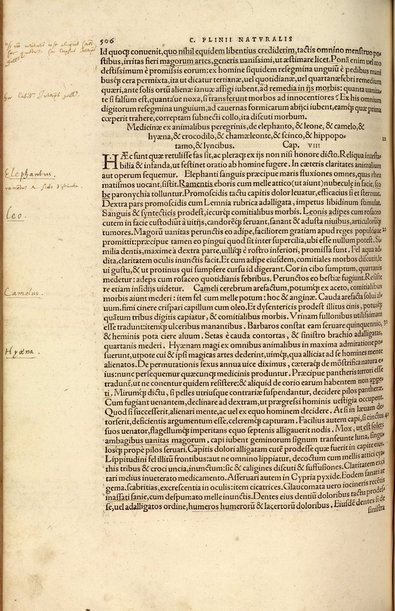 506 C. PLINII NATVRALIS
Id quoq; conuenit, quo nihil equidem libentius crediderim, tactis omnino menstruo po-
stibus, irritas fieri magorum artes, generis uanissimi, ut æstimare licet. Ponã enim uel mo
destissimum è promissis eorum: ex homine siquidem resegmina unguiũ è pedibus mani
busq; cera permixta, ita ut dicatur tertianæ, uel quotidianæ, uel quartanæ febri remedium
quæri, ante solis ortũ alienæ ianuæ affigi iubent, ad remedia in ijs morbis: quanta uanita-
te si falsum est, quanta uer noxa, si transferunt morbos ad innocentiores? Ex his omnium
digitorum resegmina unguium, ad cauernas formicarum abijci iubent, eamq; quæ prima
cœperit trahere, correptam subnecti collo, ita discuti morbum.
Medicinæ ex animalibus peregrinis, de elephanto, & leone, & camelo, &
hyæna, & crocodilo, & chamæleonte, & scinco, & hippopo
tamo, & lyncibus. Cap. VIII
HÆc sunt quæ retulisse fas sit, ac pleraq; ex ijs non nisi honore dicto. Reliqua intesta-
bilia & infanda, ut festinet oratio ab homine fugere. In cæteris claritates animalium
aut operum sequemur. Elephanti sanguis præcipue maris fluxiones omnes, quas rheu
matismos uocant, sistit. Ramentis eboris cum melle attico (ut aiunt) nubeculæ in facie, sco
be paronychia tolluntur. Promoscidis tactu capitis dolor leuatur, efficacius si & sternuat.
Dextra pars promoscidis cum Lemnia rubrica adalligata, impetus libidinum stimulat.
Sanguis & syntecticis prodest, iecurq; comitialibus morbis. Leonis adipes cum rosaceo
cutem in facie custodiũt à uitijs, candorẽq; seruant, sanant & adusta niuibus, articulorũq;
tumores. Magorũ uanitas perunctis eo adipe, faciliorem gratiam apud reges populósue
promittit: præcipue tamen eo pingui quod sit inter supercilia, ubi esse nullum potest. Si-
milia dentis, maxime à dextra parte, uilliq; è rostro inferiori, promissa sunt. Fel aqua ad-
dita, claritatem oculis inunctis facit. Et cum adipe eiusdem, comitiales morbos discutit le
ui gustu, & ut protinus qui sumpsere cursu id digerant. Cor in cibo sumptum, quartanis
medetur: adeps cum rosaceo quotidianis febribus. Perunctos eo bestiæ fugiunt. Resiste-
re etiam insidijs uidetur. Cameli cerebrum arefactum, potumq; ex aceto, comitialibus
morbis aiunt mederi: item fel cum melle potum: hoc & anginæ. Cauda arefacta solui al-
uum, fimi cinere crispari capillum cum oleo. Et dysentericis prodest illitus cinis, potusq;
quãtum tribus digitis capiatur, & comitialibus morbis. Vrinam fullonibus utilissimam
esse tradunt: itemq; ulceribus manantibus. Barbaros constat eam seruare quinquennio,
& heminis pota ciere aluum. Setas è cauda contortas, & sinistro brachio adalligatas,
quartanis mederi. Hyænam magi ex omnibus animalibus in maxima admiratione po-
suerunt, utpote cui & ipsi magicas artes dederint, uimq; qua alliciat ad se homines mente
alienatos. De permutatione sexus annua uice diximus, cæteraq; de mõstrifica natura e-
ius: nunc persequemur quæcunq; medicinis produntur. Præcipue pantheris terrori esse
traditur, ut ne conentur quidem resistere: & aliquid de corio earum habentem non appe
ti. Mirumq; dictu, si pelles utriusque contrariæ suspendantur, decidere pilos pantheræ.
Cum fugiant uenantem, declinare ad dextram, ut prægressi hominis uestigia occupent.
Quod si successerit, alienari mente, ac uel ex equo hominem decidere. At si in læuam de-
torserit, deficientis argumentum esse, celeremq; capturam. Facilius autem capi, si cinctus
suos uenator, flagellumq; imperitans equo septenis alligauerit nodis. Mox, ut est solers
ambagibus uanitas magorum, capi iubent geminorum signum transeunte luna, singu-
losq; propè pilos seruari. Capitis dolori alligatam cutẽ prodesse quæ fuerit in capite eius.
Lippitudini fel illitũ frontibus: aut ne omnino lippiatur, decoctum cum mellis attici cya-
this tribus & croci uncia, inunctum: sic & caligines discuti & suffusiones. Claritatem exci
tari melius inueterato medicamento. Asseruari autem in Cypria pyxide. Eodem sanari ar
gema, scabritias, excrescentia in oculis: item cicatrices. Glaucomata uero iocineris recentis
inassati sanie, cum despumato melle inunctis. Dentes eius dentiũ doloribus tactu prodes-
se, uel adalligatos ordine, humeros humerorũ & lacertorũ doloribus. Eiusdẽ dentes si de
sinistra
Elephantus.
Leo.
Camelus.
Hyæna.